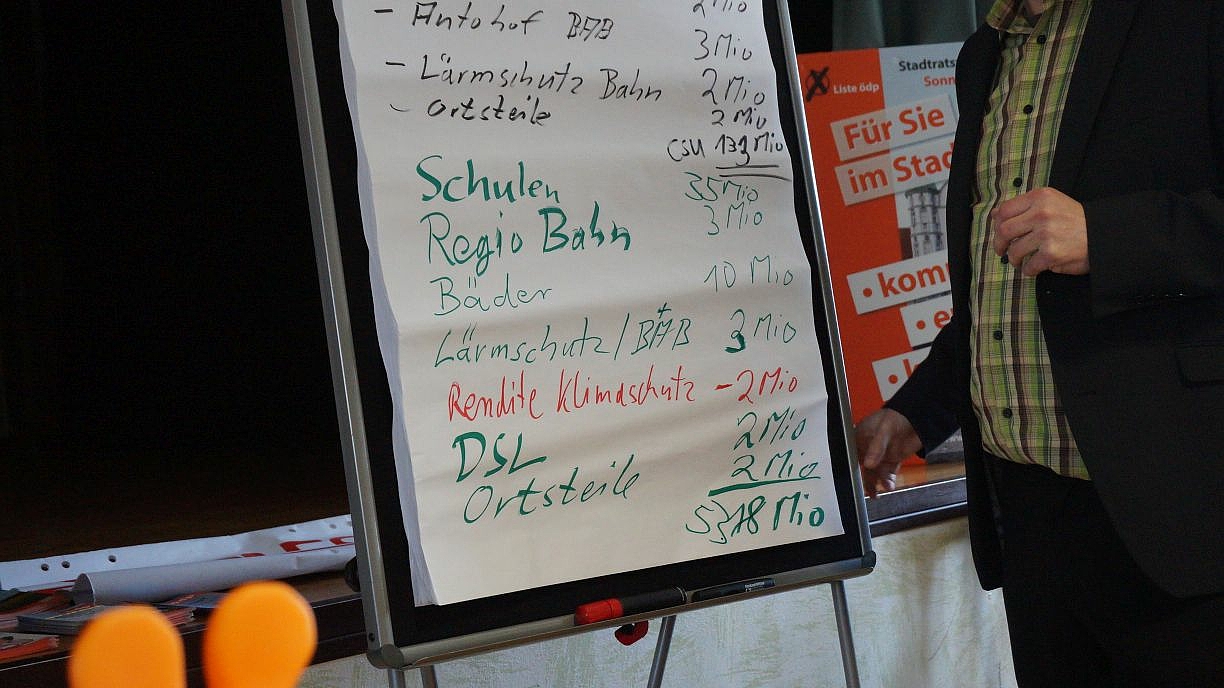 - Autohof BAB 2 Mio
3 Mio
- Lärmschutz Bahn 2 Mio
- Ortsteile 2 Mio
CSU 133 Mio
Schulen 35 Mio
Regio Bahn 3 Mio
Bäder 10 Mio
Lärmschutz/BAB 3 Mio
Rendite Klimaschutz - 2 Mio
DSL 2 Mio
Ortsteile 2 Mio
Mio
Liste ödp
Stadtrats
Sonn
Für Sie
im Stad
• kom
• e